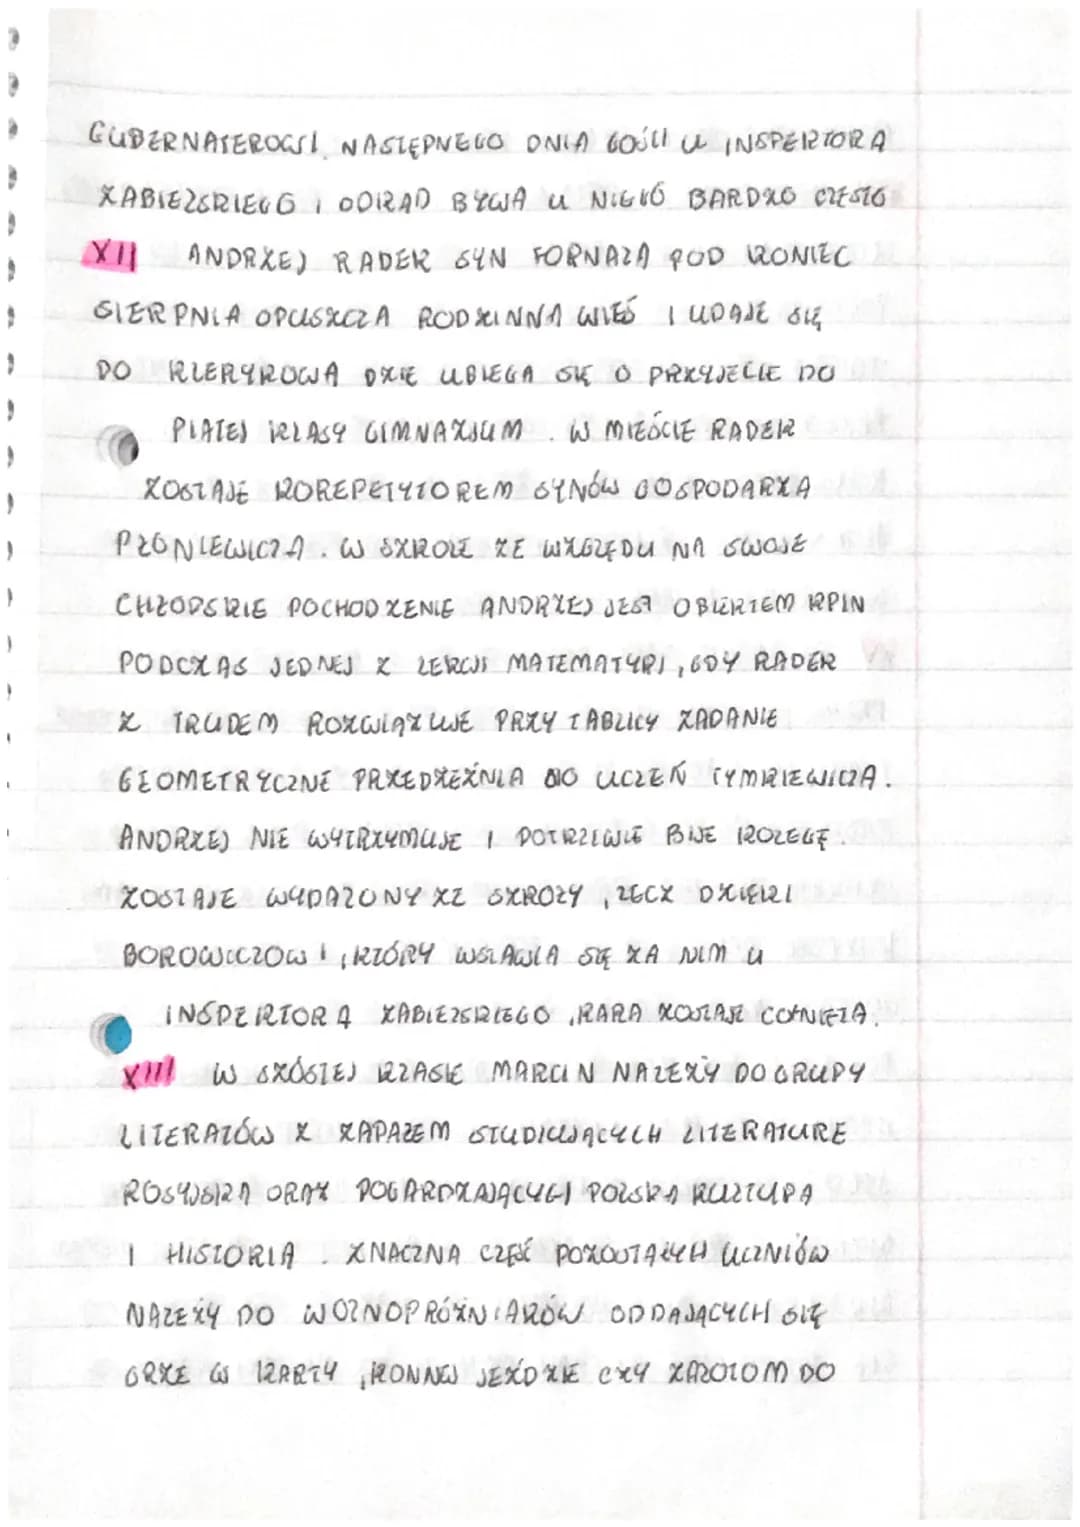 GUBERNATEROWSI. NASTĘPNEGO DNIA GOŚCI U INSPEKTORA
ZABIELSKIEGO I ODTĄD BYWA U NIEGO BARDZO CZĘSTO
XII ANDRZEJ RADEK SYN FORNALA POD KONIEC
SIERPNIA OPUSZCZA RODZINNA WIEŚ I UDAJE SIĘ
DO KLERYKOWA DZIE UBIEGA SIĘ O PRZYJĘCIE DO
PIATEJ KLASY GIMNAZJUM. W MIEŚCIE RADEK
ZOSTAJE KOREPETYTOREM SYNÓW GOSPODARZA
PŁONIEWICZA. W SZKOLE ZE WZGLĘDU NA SWOJE
CHŁOPSKIE POCHODZENIE ANDRZEJ JEST OBIEKTEM KPIN
PODCZAS JEDNEJ Z LEKCJI MATEMATYKI, GDY RADEK
Z TRUDEM ROZWIĄZUJE PRZY TABLICY ZADANIE
GEOMETRYCZNE PRZEDRZEŹNIA GO UCZEŃ TYMKIEWICZA.
ANDRZEJ NIE WYTRZYMUJE I DOTKLIWIE BIJE KOLEGĘ.
ZOSTAJE WYDALONY ZE SZKOŁY, LECZ DZIĘKI
BOROWICZOWI, KTÓRY WSTAWIA SIĘ ZA NIM U
INSPEKTORA ZABIELSKIEGO, KARA ZOSTAJE COFNIĘTA.
XIII W SZÓSTEJ KLASIE MARCIN NALEŻY DO GRUPY
LITERATÓW Z ZAPAŁEM STUDIUJACYCH LITERATURE
ROSYJSKA ORAZ POGARDZAJĄCYCH POLSKA KULTURA
I HISTORIA. ZNACZNA CZĘŚĆ POZOSTAŁYCH UCZNIÓW
NALEŻY DO WOLNOPRÓŻNIAKÓW ODDAJĄCYCH SIĘ
GRZE W KARTY, KONNEJ JEŹDZIE CZY ZALOTOM DO